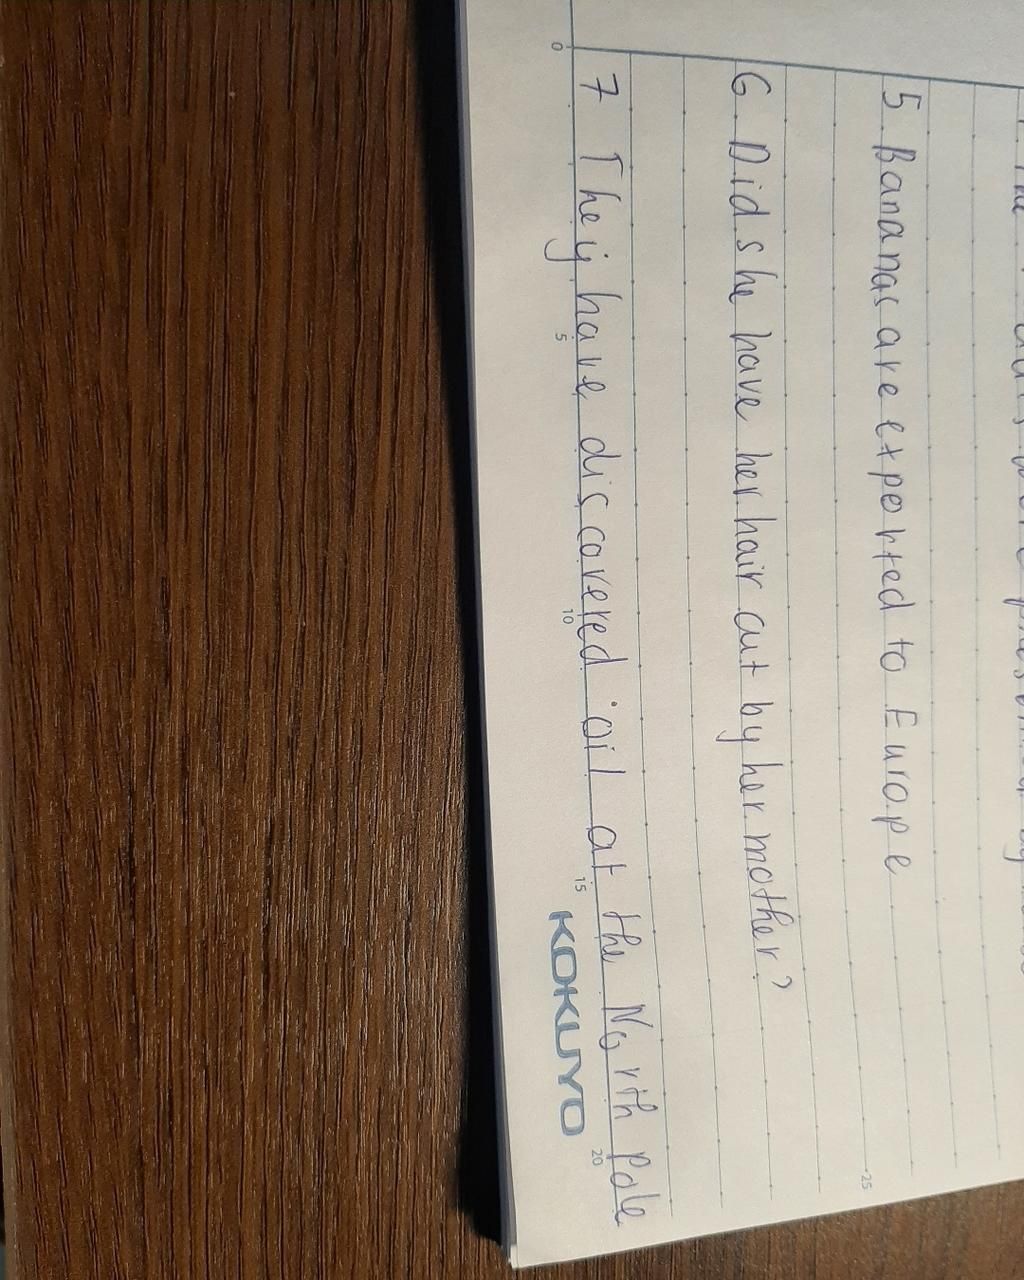 5 Bananas are exported to Europe
6 Did she have her hair cut by her mother?
7 They have discovered oil at the North Pole
0 5 10 15 20
KOKUYO
25